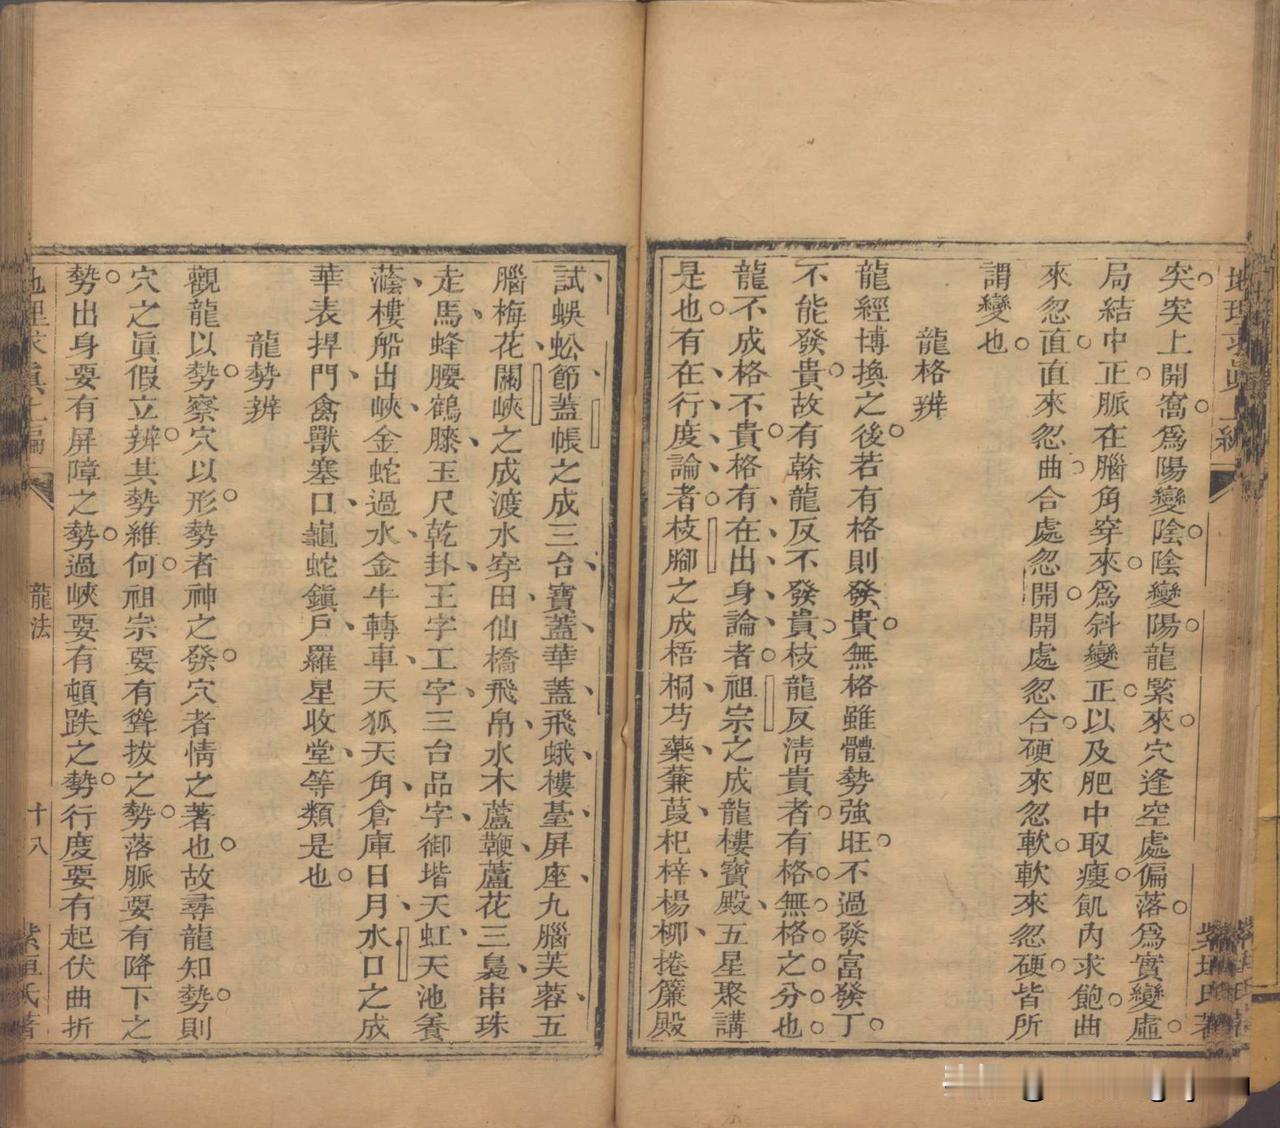 地理求眞上編
紫垣氏著
突突上開窩爲陽變陰陰變陽龍緊來穴逢空處偏落爲實變虛
局結中正脈在腦角穿來爲斜變正以及肥中取瘦飢內求飽曲
來忽直直來忽曲合處忽開開處忽合硬來忽軟軟來忽硬皆所
謂變也
龍格辨
龍經博換之後若有格則發貴無格雖體勢強旺不過發富發丁
不能發貴故有榦龍反不發貴枝龍反淸貴者有格無格之分也
龍不成格不貴格有在出身論者祖宗之成龍樓寶殿五星聚講
是也有在行度論者枝腳之成梧桐芍藥蒹葭杞梓楊柳捲簾殿
試蜈蚣節蓋帳之成三台寶蓋華蓋飛蛾樓臺屛座九腦芙蓉五
腦梅花關峽之成渡水穿田仙橋飛帛水木蘆鞭蘆花三梟串珠
走馬蜂腰鶴膝玉尺乾卦王字工字三台品字御堦天虹天池養
蔭樓船出峽金蛇過水金牛轉車天狐天角倉庫日月水口之成
華表捍門禽獸塞口龜蛇鎭戶羅星收堂等類是也
龍勢辨
觀龍以勢察穴以形勢者神之發穴者情之著也故尋龍知勢則
穴之眞假立辨其勢維何祖宗要有聳拔之勢落脈要有降下之
勢出身要有屛障之勢過峽要有頓跌之勢行度要有起伏曲折
地理求眞上編
龍法
十八
紫垣氏著